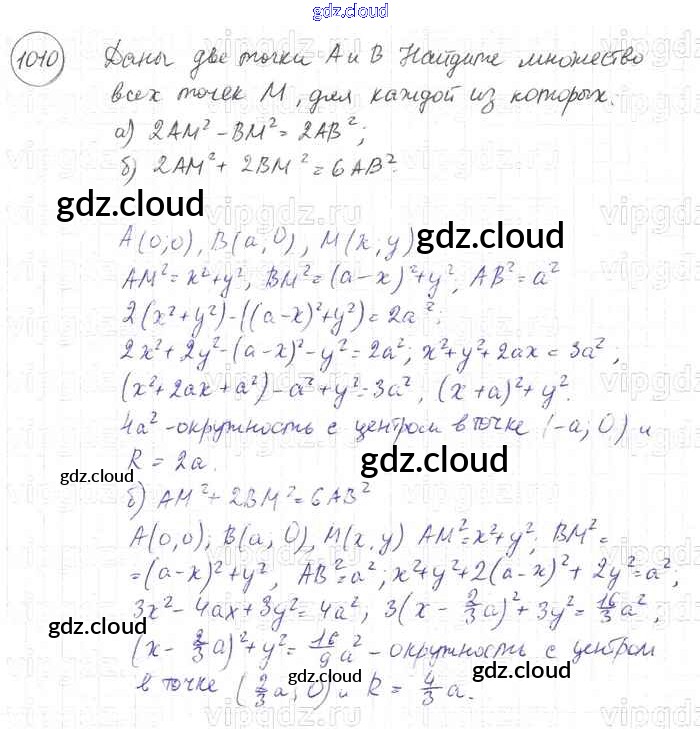 gdz.cloud
1010 Даны две точки A и B Найдите множество
всех точек M, для каждой из которых.
а) 2AM² - BM² = 2AB²;
б) 2AM² + 2BM² = 6AB².
gdz.cloud
A(0;0), B(a;0), M(x;y)
AM² = x²+y², BM² = (a-x)²+y², AB² = a²
gdz.cloud
2(x²+y²)-((a-x)²+y²) = 2a²;
2x²+2y²-(a-x)²-y² = 2a²; x²+y²+2ax = 3a²;
(x²+2ax+a²)-a²+y² = 3a², (x+a)²+y².
4a² - окружность с центром в точке (-a; 0) и
gdz.cloud
R = 2a.
gdz.cloud
б) AM² + 2BM² = 6AB²
A(0,0); B(a; 0), M(x,y) AM² = x²+y²; BM² =
= (a-x)²+y², AB² = a²; x²+y²+2(a-x)²+2y² = a²,
gdz.cloud
3x²-4ax+3y² = 4a², 3(x-⅔a)²+3y² = 16/3 a²,
gdz.cloud
(x-⅔a)²+y² = 16/9 a² - окружность с центром
gdz.cloud
в точке (⅔a; 0) и R = 4/3 a.
gdz.cloud